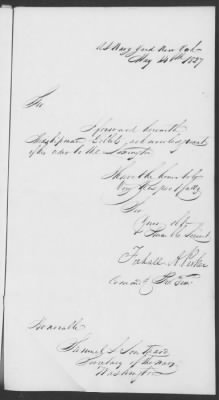 U.S. Navy Yard New York
May 14th 1827
Sir
I forward herewith
Midshipman
order to the Lexington
I have the honor to be
Very Respectfully
Sir
Your Obt
Humble Servant
A Parker
Comdt Pro Tem
Honorable
Samuel L Southard
Secretary of the Navy
Washington